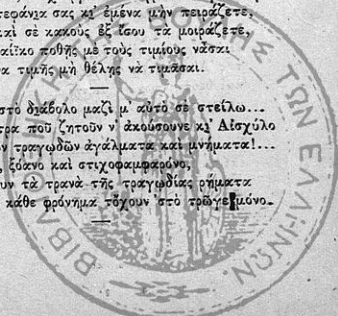 τεφάνια σας κι' ἐμένα μὴν πειράζετε,
καὶ σὲ κακοὺς ἐξ ἴσου τα μοιράζετε,
αίϊκο ποθῇς μὲ τοὺς τιμίους νἆσαι
να τιμῆς μὴ θέλῃς νὰ τιμᾶσαι.
στὸ διάβολο μαζὶ μ' αὐτὸ σὲ στείλω...
τρα ποῦ ζητοῦν ν' ἀκούσουνε κι' Αἰσχύλο
ν τραγωδῶν ἀγάλματα καὶ μνήματα!...
ξόανο καὶ στιχοφαμφαρόνο,
ουν τὰ τρανὰ τῆς τραγωδίας ρήματα
κάθε φρόνημα τὄχουν 'στὸ τρῶγε μόνο.
ΤΗΣ ΤΩΝ ΕΛΛΗΝΩΝ
ΒΙΒΛ